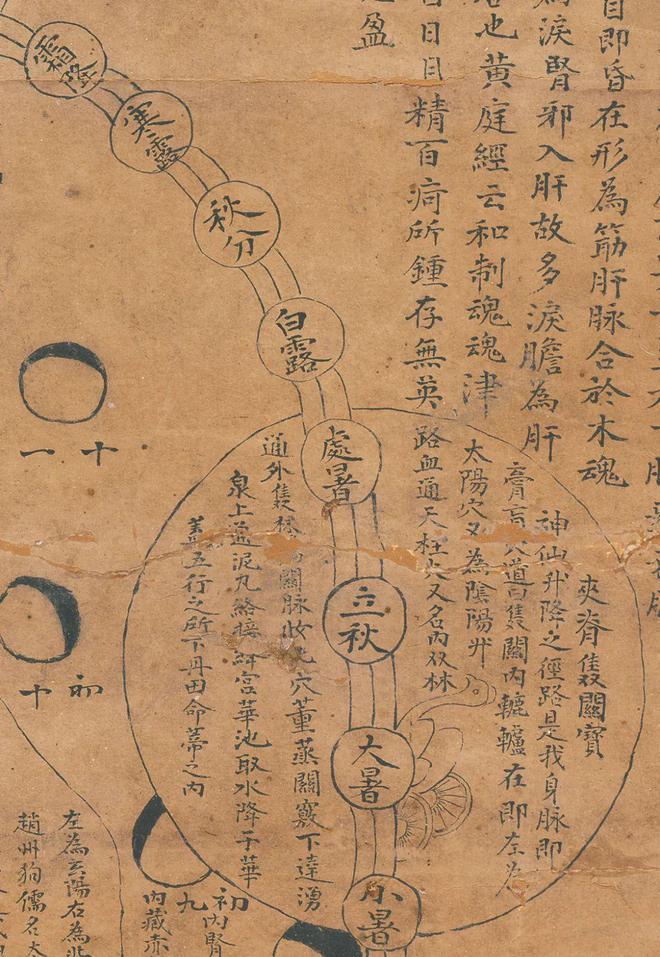 目即昏在形為筋肝脉合於木魂
為淚腎邪入肝故多淚膽為肝
也黃庭經云和制魂魂津
日日目精百疴所鍾存無英
之盈
夾脊隻關寶
神仙升降之徑路是我身脉即
膏肓穴道隻關內轆轤在即奈为
太陽穴又為陰陽升
路血通天柱穴又名內双林
通外隻林關脉收穴董蒸關竅下達湧
泉上通泥丸絡接絳宮華池取水降于華
蓋五行之所下丹田命蒂之內
霜降
寒露
秋分
白露
處暑
立秋
大暑
小暑
十一
初十
初九
內腎
內藏赤
左為玄陽右為北
趙州狗儒名太